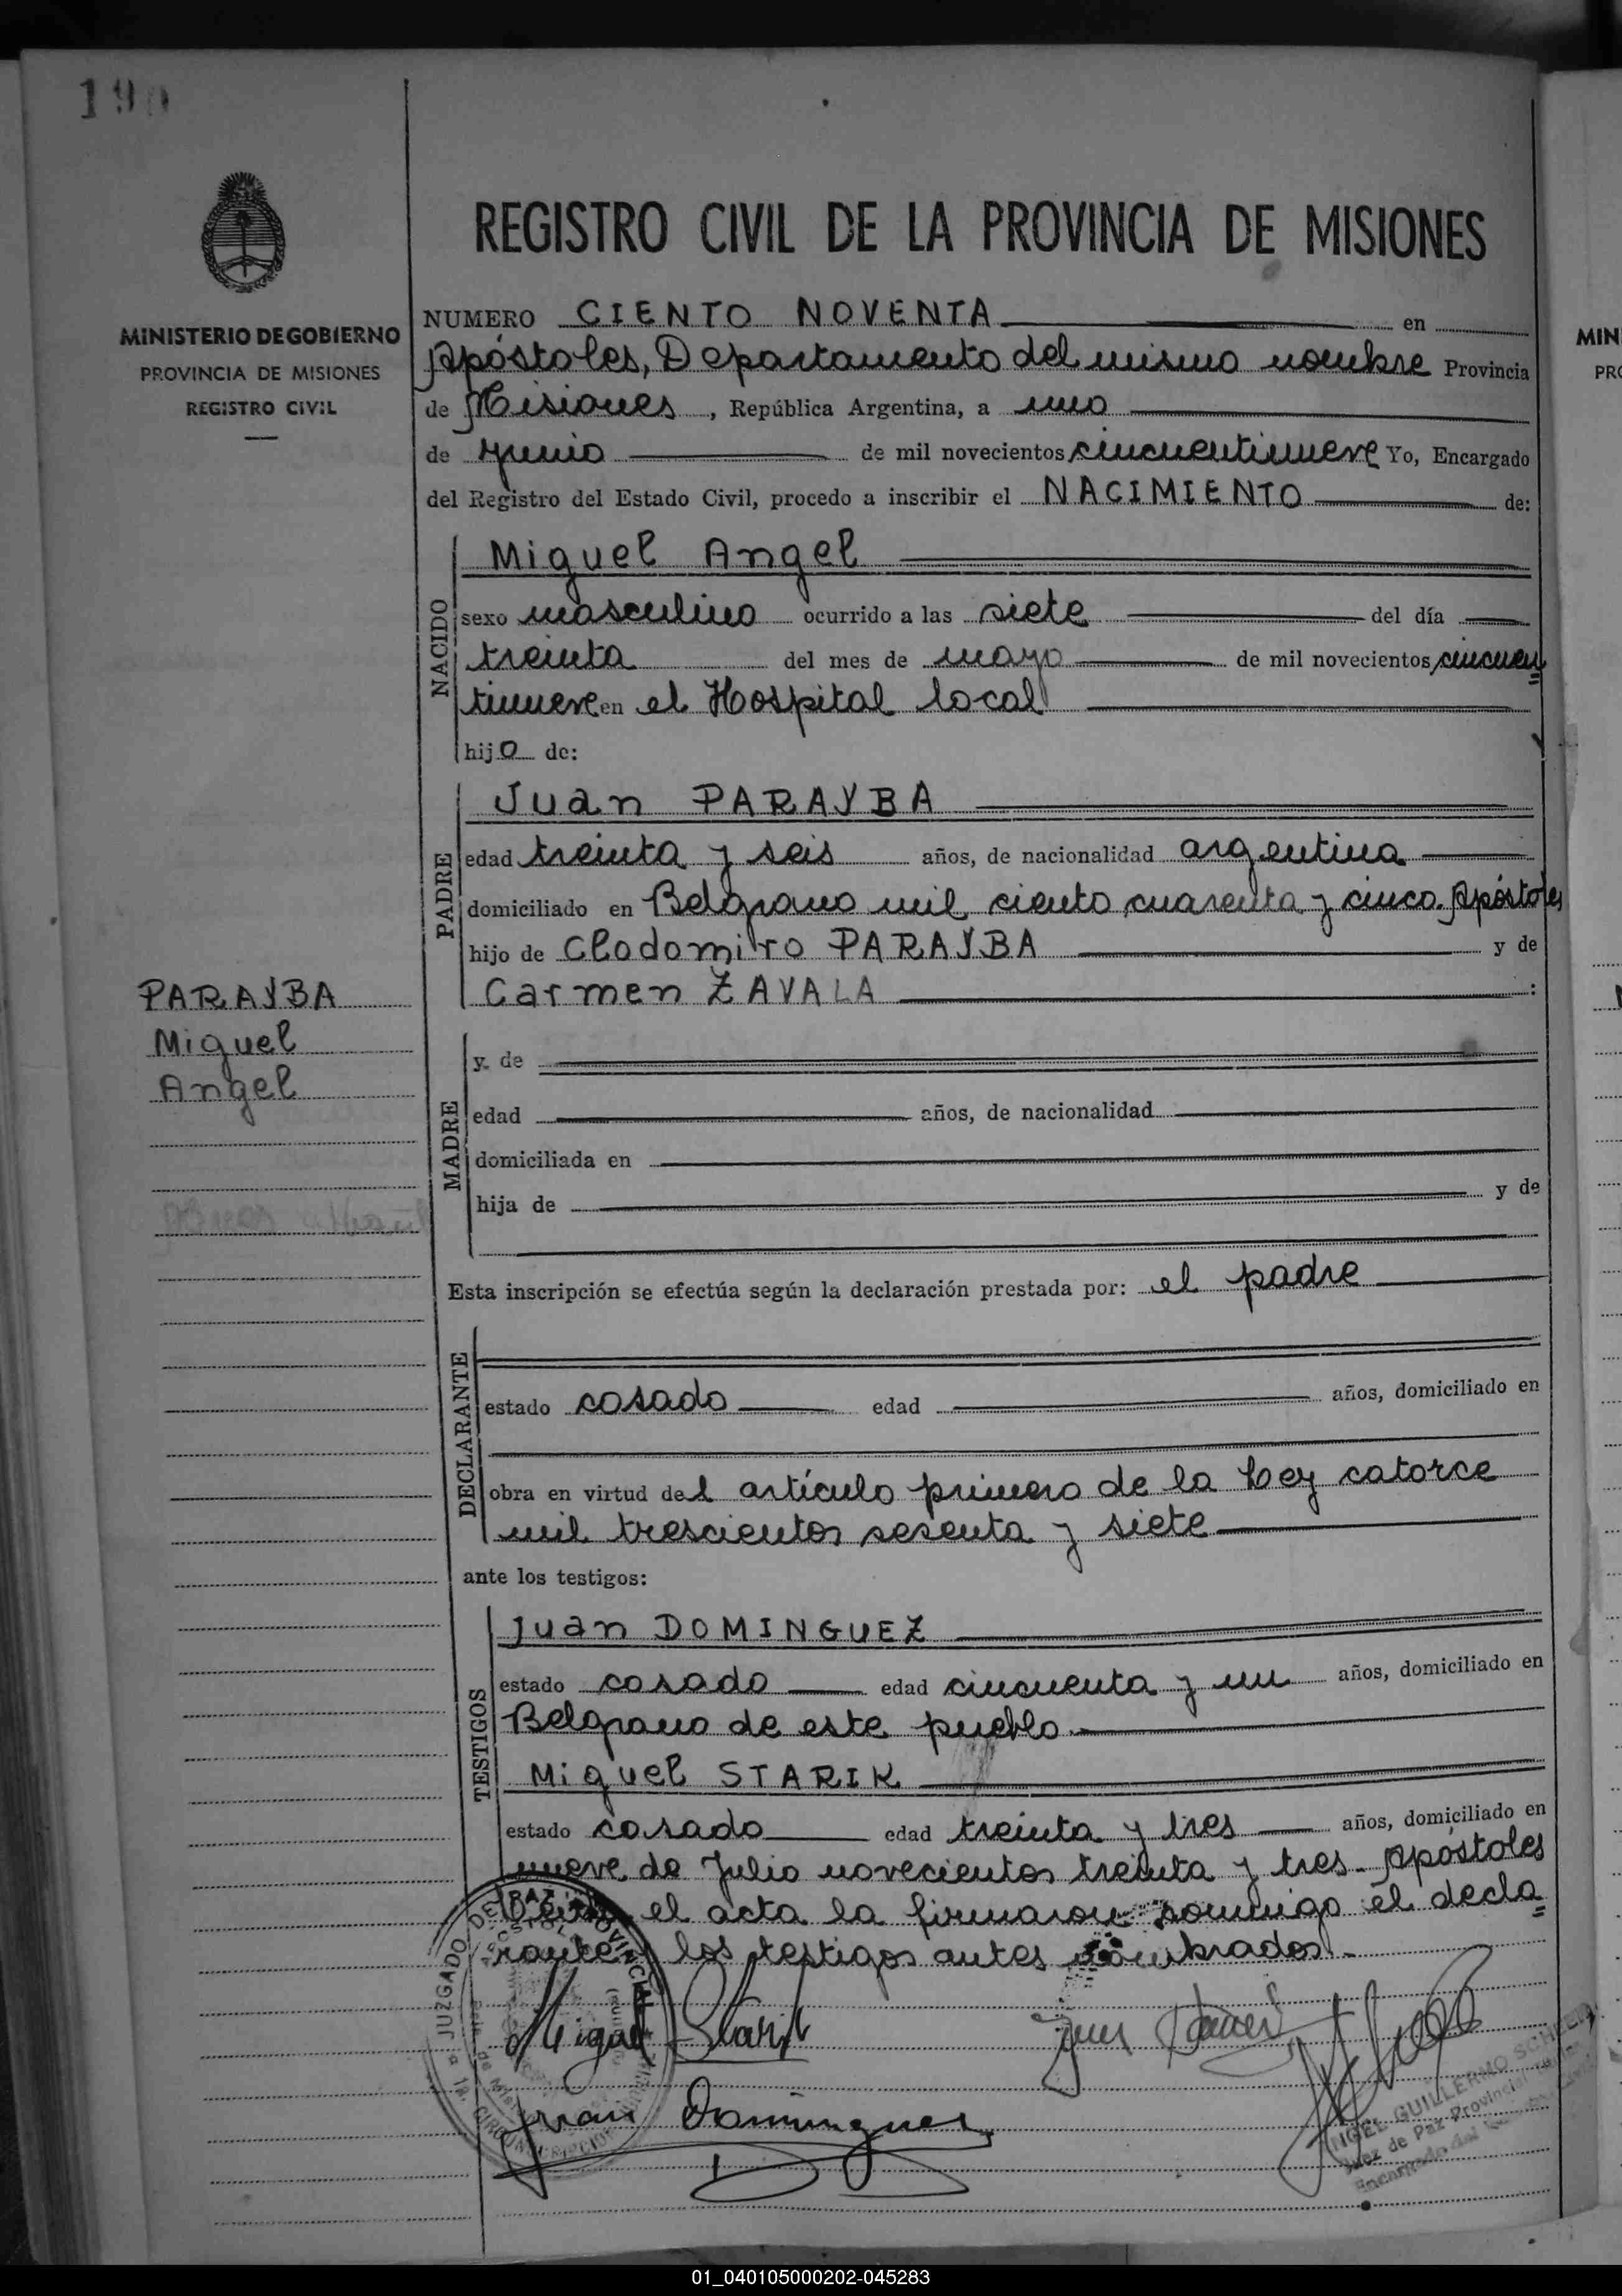 190
MINISTERIO DE GOBIERNO
PROVINCIA DE MISIONES
REGISTRO CIVIL
REGISTRO CIVIL DE LA PROVINCIA DE MISIONES
NUMERO CIENTO NOVENTA en
Apóstoles, Departamento del mismo nombre Provincia
de Misiones, República Argentina, a uno
de junio de mil novecientos cincuentinueve Yo, Encargado
del Registro del Estado Civil, procedo a inscribir el NACIMIENTO de:
NACIDO
Miguel Angel
sexo masculino ocurrido a las siete del día
treinta del mes de mayo de mil novecientos cincuen
tinueve en el Hospital local
hijo de:
PADRE
Juan PARAYBA
edad treinta y seis años, de nacionalidad argentina
domiciliado en Belgrano mil ciento cuarenta y cinco. Apóstoles
hijo de Clodomiro PARAYBA y de
Carmen ZAVALA :
PARAYBA
Miguel
Angel
MADRE
y de
edad años, de nacionalidad
domiciliada en
hija de y de
Esta inscripción se efectúa según la declaración prestada por: el padre
DECLARANTE
estado casado edad años, domiciliado en
obra en virtud del artículo primero de la Ley catorce
mil trescientos sesenta y siete
ante los testigos:
TESTIGOS
Juan DOMINGUEZ
estado casado edad cincuenta y un años, domiciliado en
Belgrano de este pueblo.
Miguel STARIK
estado casado edad treinta y tres años, domiciliado en
nueve de Julio novecientos treinta y tres. Apóstoles
el acta la firmaron conmigo el decla
rante y los testigos antes nombrados.
JUZGADO DE PAZ
Miguel Starik
Juan Dominguez
ANGEL GUILLERMO
Juez de Paz Provincial
Encargado del
MIN
PRO
01_040105000202-045283